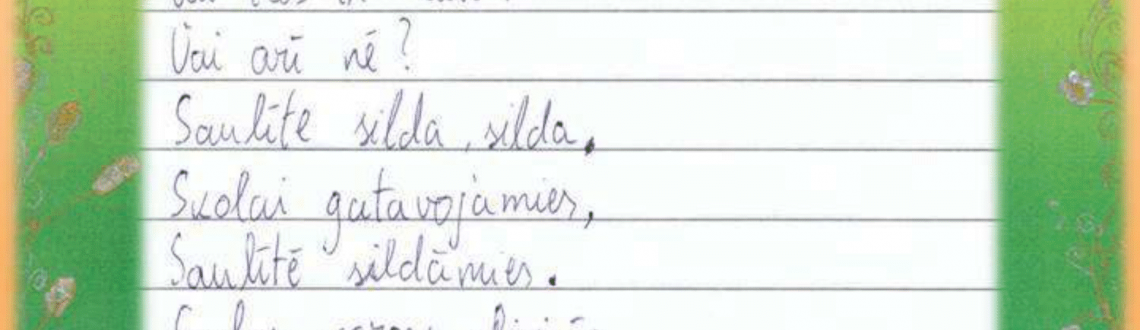 Vai arī nē?
Saulīte silda, silda,
Skolai gatavojamies,
Saulītē sildāmies.